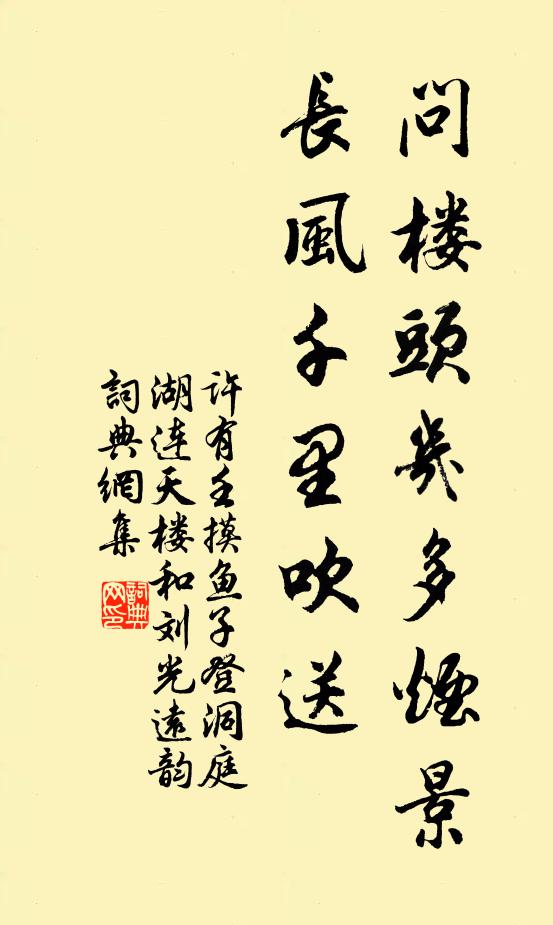 問楼頭幾多煙景
長風千里吹送
许有壬摸鱼子登洞庭
湖连天楼和刘光遠韵
詞典網集
詞典
网印